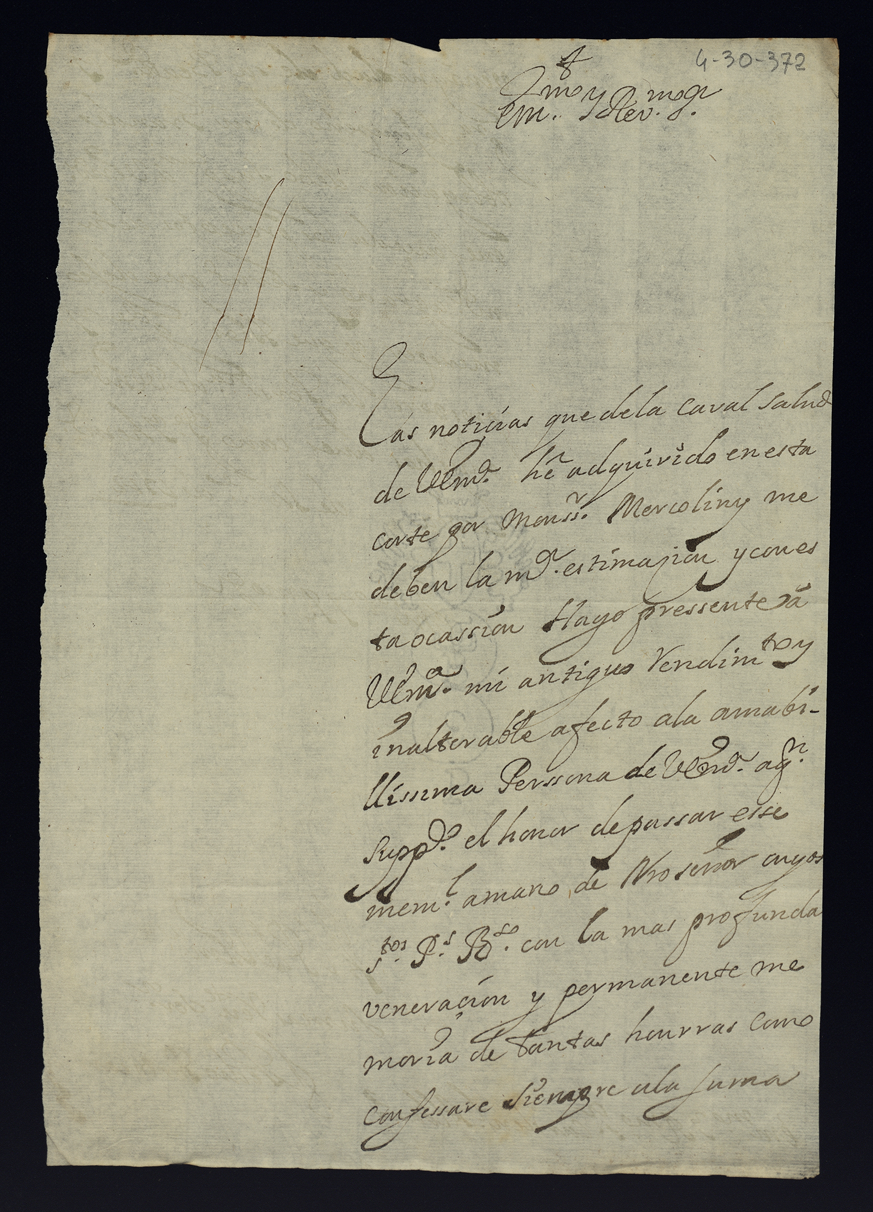 4-30-372
+
Em.mo y Rev.mo Sr.
Las noticias que de la caval salud
de VEm.a hè adquirido en esta
corte por Monsr. Mercoliny me
deben la mr. estimazion y con es
ta ocassion Hago pressente à
VEm.a mi antiguo Rendim.to y
inalterable afecto ala amabi-
llissima Perssona de VEm.a aqn.
supp.co el honor de passar esse
mem.l amano de Nro señor cuyos
s.tos P.s B.so con la mas profunda
veneración y permanente me
moria de tantas honrras como
confessare siempre ala suma